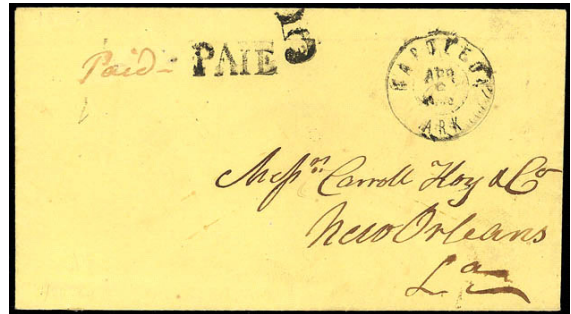 Paid- PAIE 5
NAPOLEON
APR
6
ARK
Messrs Carroll Hoy & Co
New Orleans
La